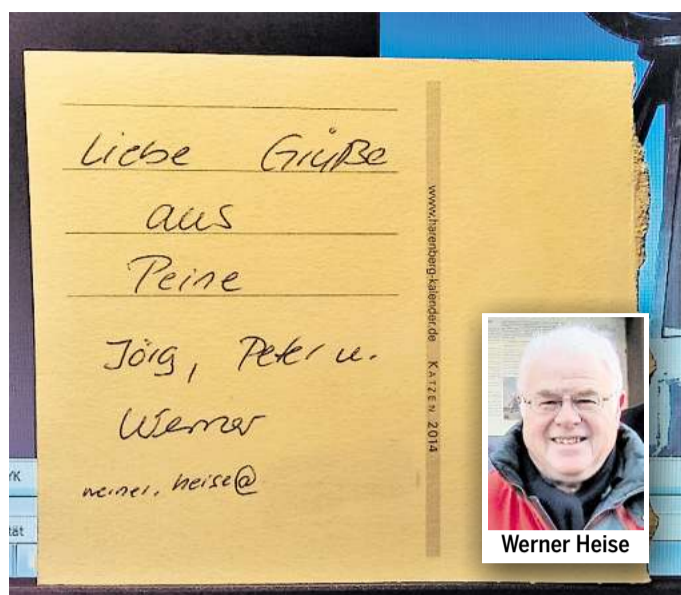 Liebe Grüße
aus
Peine
Jörg, Peter u.
Werner
werner.heise@
www.harenberg-kalender.de KATZEN 2014
YK
tät
Werner Heise